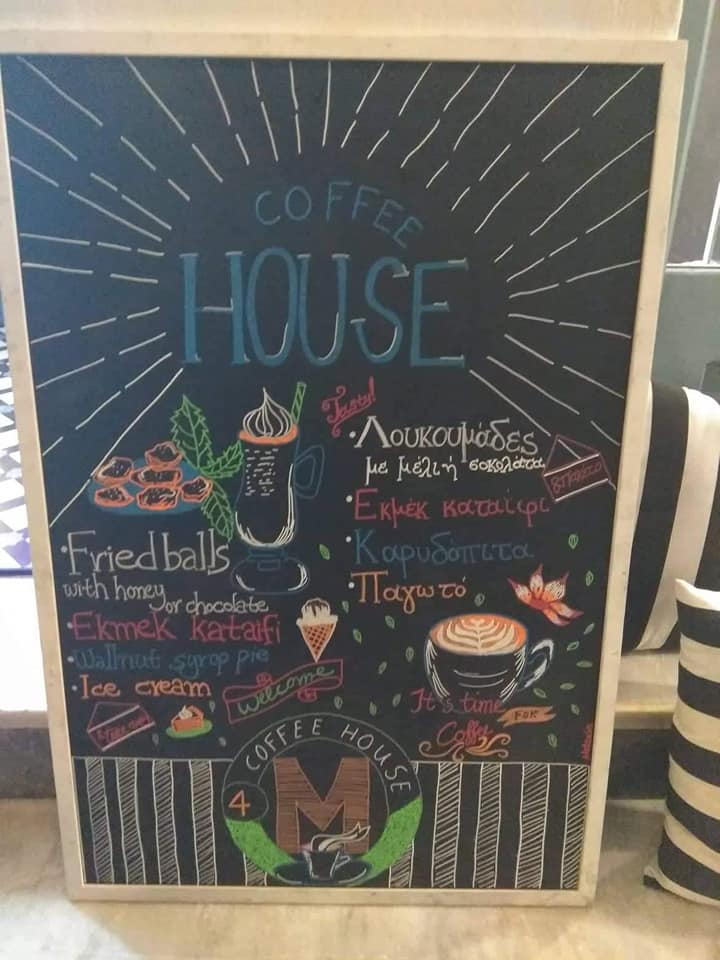 COFFEE
HOUSE
Tasty!
·Λουκουμάδες
με μέλι ή σοκολάτα
·Εκμέκ καταΐφι
·Καρυδόπιτα
·Παγωτό
·Fried balls
with honey
or chocolate
·Ekmek kataifi
·Wallnut syrop pie
·Ice cream
Welcome
It's time
FOR
Coffee
COFFEE HOUSE
4
M